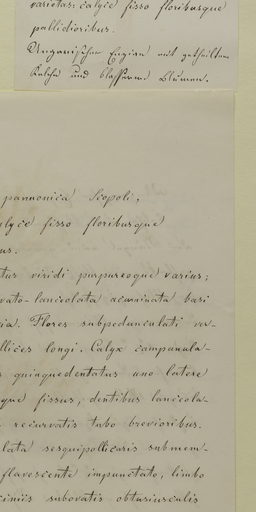 varietas: calyce fisso floribusque
pallidioribus.
Ungarischer Enzian mit getheiltem
Kelche und blasseren Blumen.
pannonica Scopoli,
alyce fisso floribusque
us.
tus viridi purpureoque varius;
vato-lanceolata acuminata basi
ia. Flores subpedunculati ver-
llices longi. Calyx campanula-
s quinquedentatus uno latere
que fissus, dentibus lanceola-
recurvatis tubo brevioribus.
lata sesquipollicaris submem-
flavescente impunctato, limbo
ciniis subovatis obtusiusculis